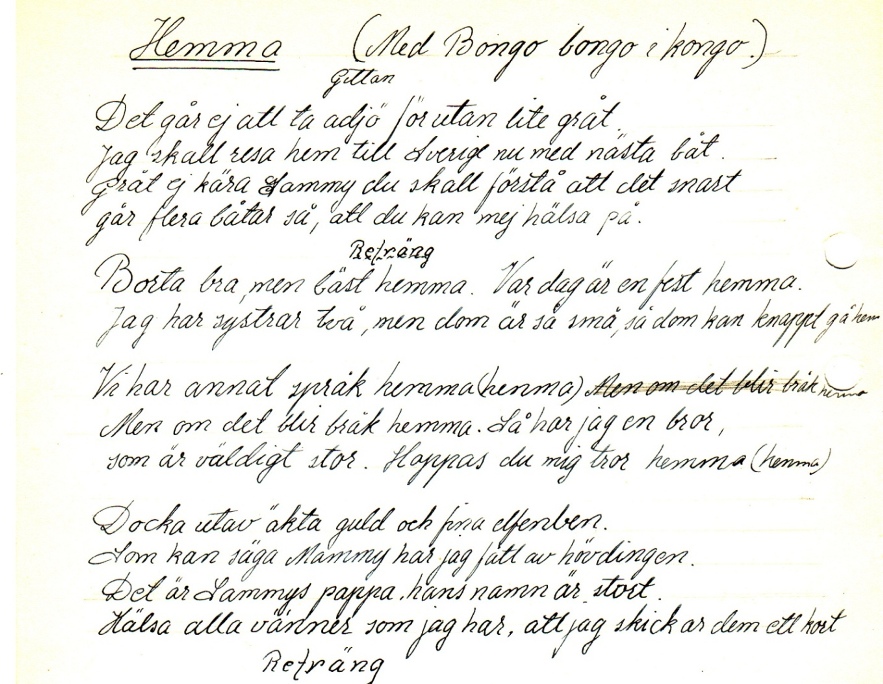 Hemma (Med Bongo bongo i kongo.)
Gittan
Det går ej att ta adjö förutan lite gråt
Jag skall resa hem till Sverige nu med nästa båt.
Gråt ej kära Sammy du skall förstå att det snart
går flera båtar så, att du kan mej hälsa på.
Refräng
Borta bra, men bäst hemma. Var dag är en fest hemma.
Jag har systrar två, men dom är så små, så dom kan knappt gå hem
Vi har annat språk hemma (hemma) Men om det blir bråk hemma
Men om det blir bråk hemma. Så har jag en bror,
som är väldigt stor. Hoppas du mig tror hemma (hemma)
Docka utav äkta guld och fina elfenben.
Som kan säga Mammy har jag fått av hövdingen.
Det är Sammys pappa, hans namn är stort.
Hälsa alla vänner som jag har, att jag skickar dem ett kort
Refräng